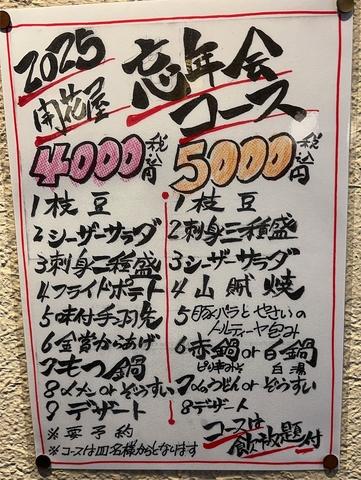 2025
開花屋
忘年会
コース
4000税込円
5000税込円
1枝豆
2シーザーサラダ
3刺身二種盛
4フライドポテト
5味付手羽先
6金賞からあげ
7もつ鍋
8〆メン or ぞうすい
9デザート
※要予約
※コースは四名様からとなります
1枝豆
2刺身三種盛
3シーザーサラダ
4山賊焼
5豚バラとやさいの
トルティーヤ包み
6赤鍋or白鍋
ピリ辛みそ 白湯
7〆うどん or ぞうすい
8デザート
コースは
飲放題付